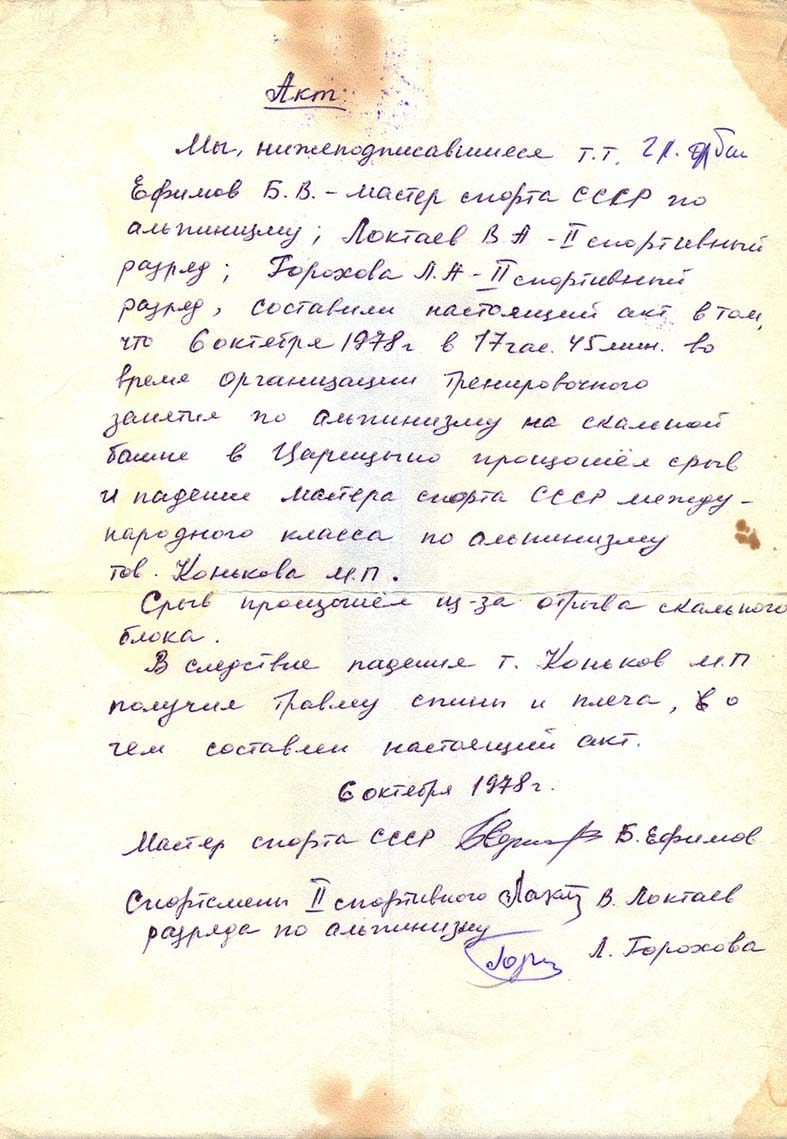 Акт:
Мы, нижеподписавшиеся т.т.
Ефимов Б.В. – мастер спорта СССР по
альпинизму; Локтаев В.А – II спортивный
разряд; Горохова Л.А – II спортивный
разряд, составили настоящий акт в том,
что 6 октября 1978г в 17 час. 45 мин. во
время организации тренировочного
занятия по альпинизму на скальной
башне в Царицыно произошёл срыв
и падение мастера спорта СССР между-
народного класса по альпинизму
тов. Конькова М.П.
Срыв произошёл из-за отрыва скального
блока.
В следствие падения т. Коньков М.П
получил травму спины и плеча, о
чем составлен настоящий акт.
6 октября 1978г.
Мастер спорта СССР Б. Ефимов
Спортсмены II спортивного В. Локтаев
разряда по альпинизму
Л. Горохова